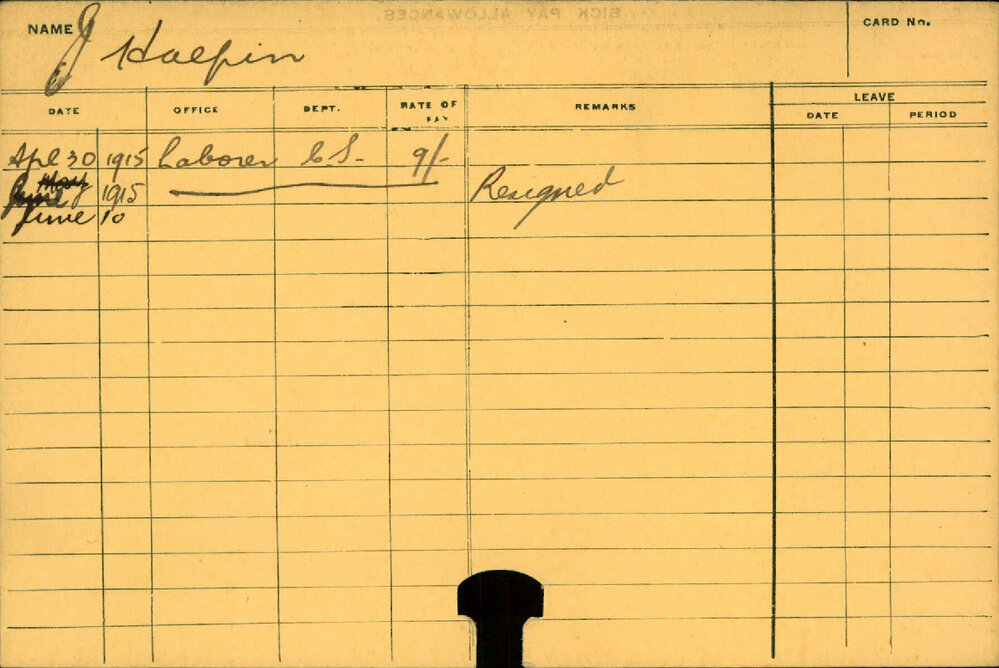 SICK PAY ALLOWANCES.
NAME J Halpin
CARD No.
DATE OFFICE DEPT. RATE OF PAY REMARKS LEAVE
DATE PERIOD
Apl 30 1915 Laborer C.S. 9/-
May
June 1915 Resigned
June 10